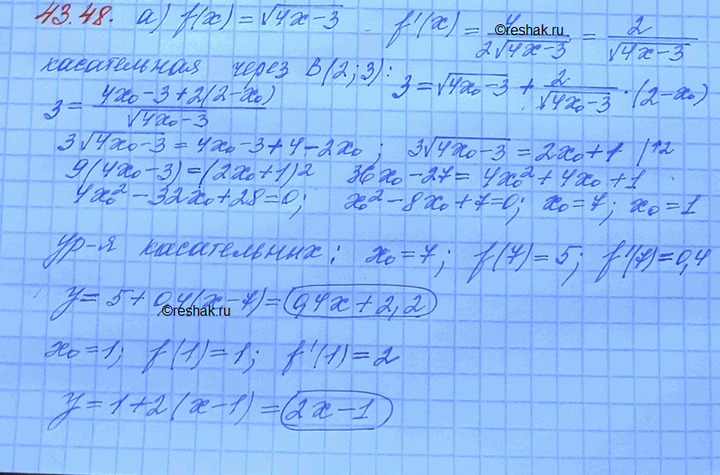 43.48. а) f(x) = √4x-3 . f'(x) = 4/2√4x-3 = 2/√4x-3
©reshak.ru
касательная через В(2;3): 3 = √4x₀-3 + 2/√4x₀-3 · (2-x₀)
3 = 4x₀-3+2(2-x₀)/√4x₀-3
3√4x₀-3 = 4x₀-3+4-2x₀ ; 3√4x₀-3 = 2x₀+1 |↑2
9(4x₀-3) = (2x₀+1)² 36x₀-27 = 4x₀²+4x₀+1
4x₀²-32x₀+28=0; x₀²-8x₀+7=0; x₀=7; x₀=1
ур-я касательных: x₀=7; f(7)=5; f'(7)=0,4
y = 5+0,4(x-7) = 0,4x+2,2
©reshak.ru
x₀=1; f(1)=1; f'(1)=2
y = 1+2(x-1) = 2x-1